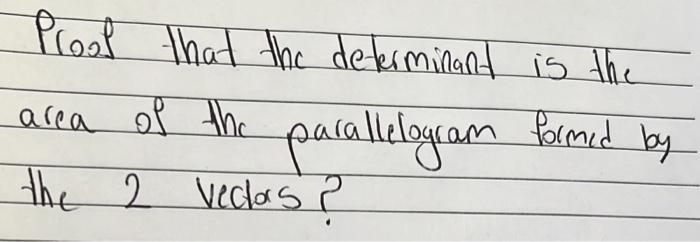 Proof that the determinant is the
area of the parallelogram formed by
the 2 vectors?